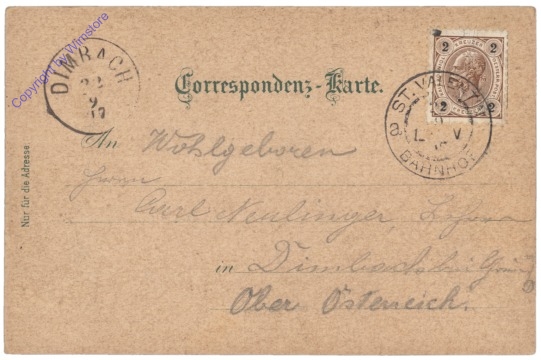 Copyright by Wimstore
DIMBACH
22
9
97
2 KREUZER 2
2 2
ST. VALENTIN
BAHNHOF
Correspondenz-Karte.
An Wohlgeboren
Herrn
Carl Neulinger,
in Dimbach bei
Ober Österreich.
Nur für die Adresse